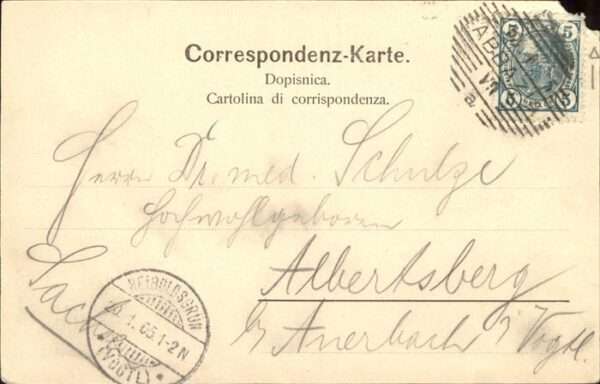 Correspondenz-Karte.
Dopisnica.
Cartolina di corrispondenza.
5 5
5 5
ABBAZIA
Herrn Dr. med. Schulze
Hochwohlgeboren
Albertsberg
b/ Auerbach i/ Vogtl.
Sachsen
REIBOLDSGRÜN
1.05.1-2N
(VOGTL)